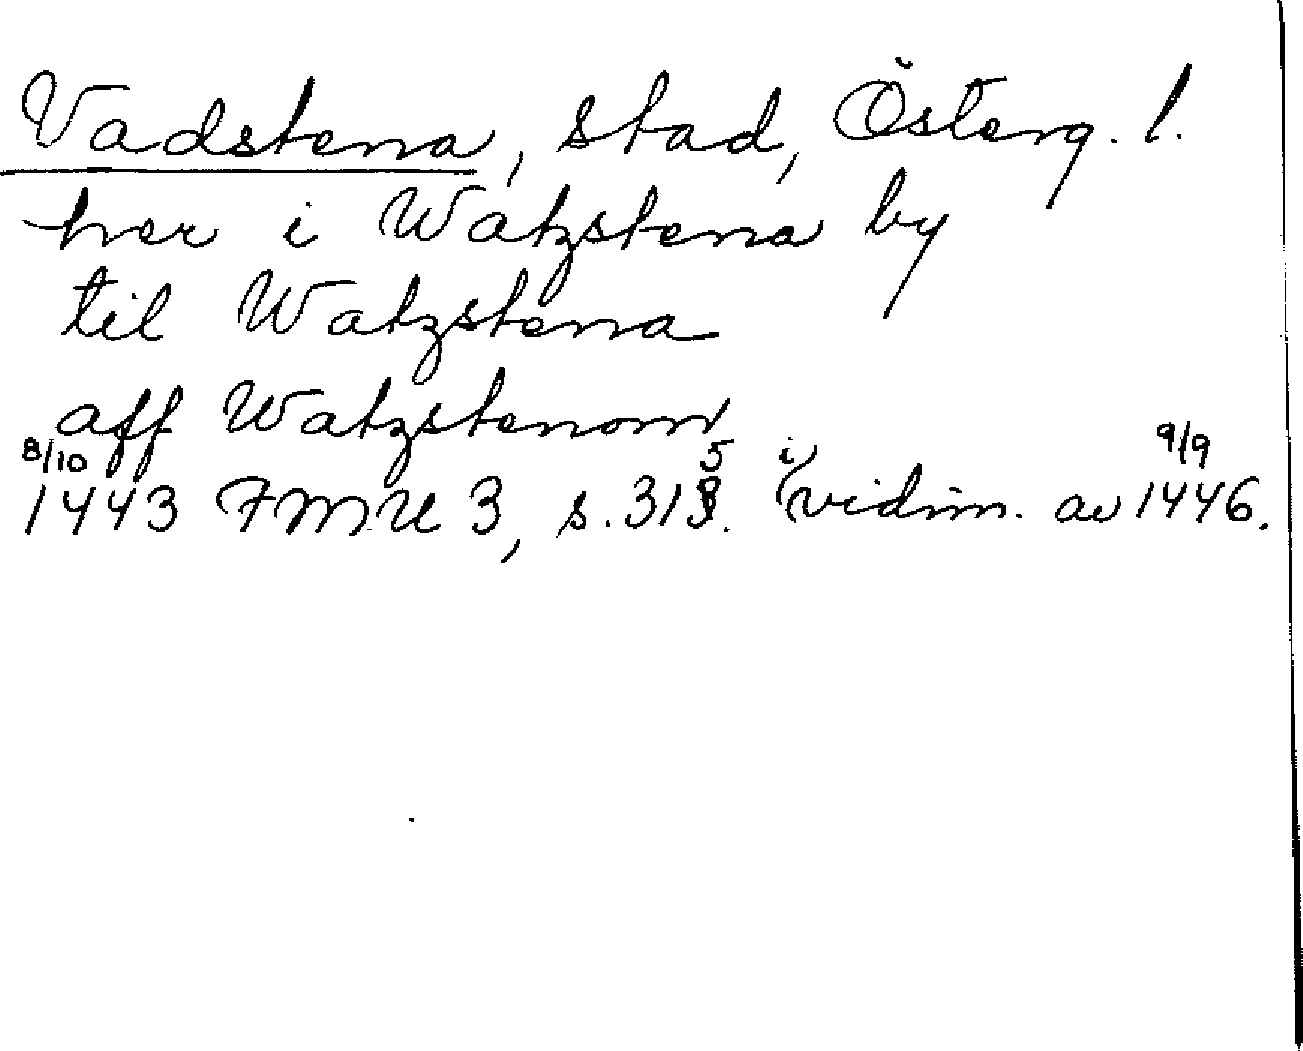 Vadstena, stad, Österg. l.
her i Watzstena by
til Watzstena
aff Watzstenom
8/10 1443 FMU 3, s. 315. i vidim. av 9/9 1446.